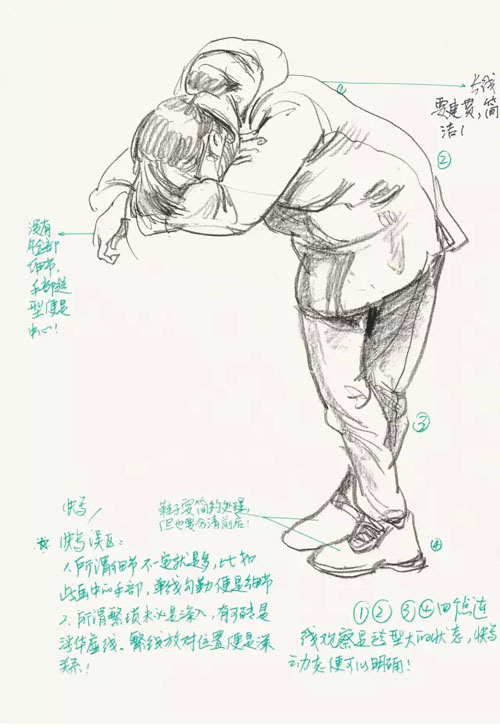 长线
要连贯,简
洁!
②
没有
脸部
细节,
手部造
型便是
中心!
③
鞋子要简约处理
但也要分清前后!
④
快写
☆ 快写误区:
1.所谓细节不一定就是多,比如
此画中的手部,单线勾勒便是细节
2.所谓繁琐未必是深入,有可能是
浮华虚线。繁线放对位置便是深
关系!
①②③④四个点连
线观察是造型大的状态,快写
动态便可以明确!